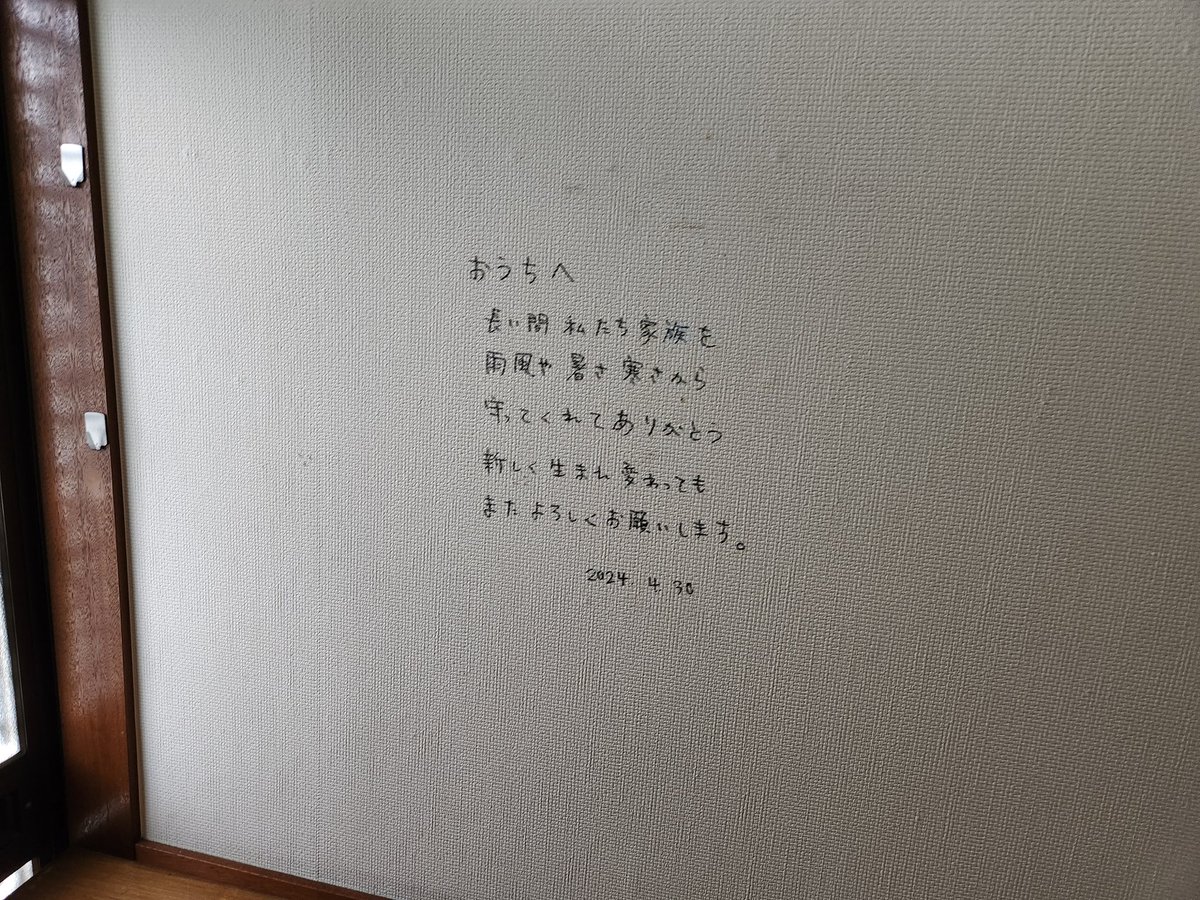 おうちへ
長い間 私たち家族を
雨風や 暑さ 寒さから
守ってくれてありがとう
新しく生まれ変わっても
またよろしくお願いします。
2024. 4. 30